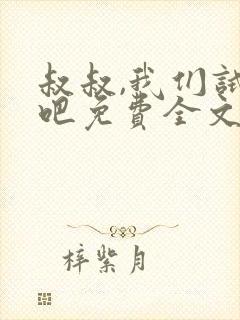 叔叔,我们试
吧免费全文
梓紫月